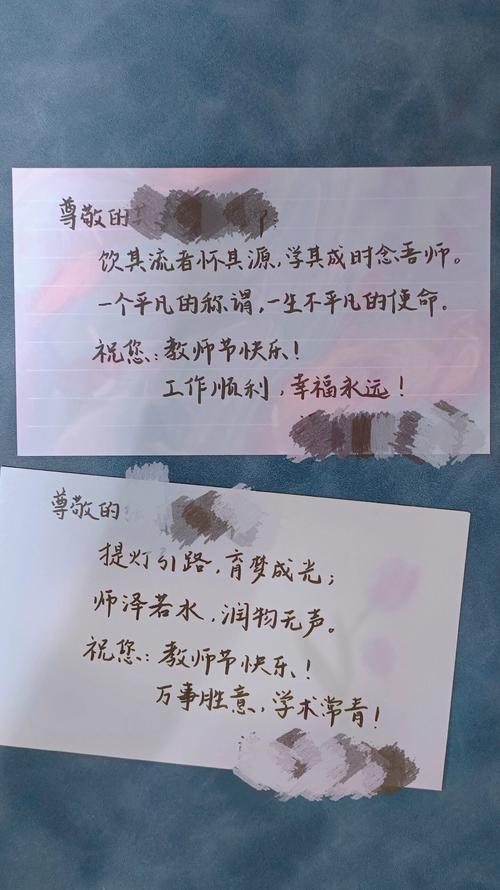 尊敬的
饮其流者怀其源，学其成时念吾师。
一个平凡的称谓，一生不平凡的使命。
祝您：教师节快乐！
工作顺利，幸福永远！
尊敬的
提灯引路，育梦成光；
师泽若水，润物无声。
祝您：教师节快乐！
万事胜意，学术常青！